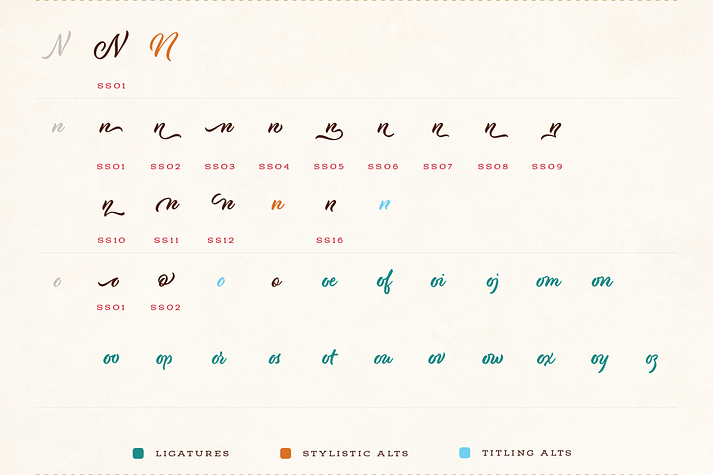 N N N
SS01
n n n n n n n n n n
SS01 SS02 SS03 SS04 SS05 SS06 SS07 SS08 SS09
n n n n n n
SS10 SS11 SS12 SS16
o o o o o oe of oi oj om on
SS01 SS02
oo op or os ot ou ov ow ox oy oz
LIGATURES STYLISTIC ALTS TITLING ALTS